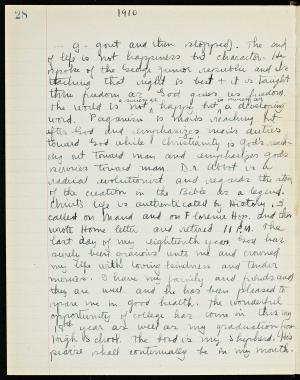 28
1910
g. gont and then stopped). The end
of life is not happiness but character. He
spoke of the George Junior republic and its
teaching that right is best + it is taught
thru freedom as God gives us freedom.
The world is not happy but a developing
word. Paganism is man's reaching out
after God and emphasizes man's duties
toward God while Christianity is God's reach-
ing out toward man and emphasizes God's
services toward man. Dr. Abbot is a
radical evolutionist and regards the story
of the creation in the Bible as a legend.
Christ's life is authenticated by History. I
called on Maand and on Florence Hop. and then
wrote Home letter and retired 11 P.M. The
last day of my eighteenth year. God has
surely been gracious unto me and crowned
my life with loving kindness and tender
mercies. I have my family and friends and
they are well and he has been pleased to
spare me in good health. The wonderful
opportunity of college has come in this my
year as well as my graduation from
High School. The Lord is my Shepherd. His
praise shall continually be in my mouth.